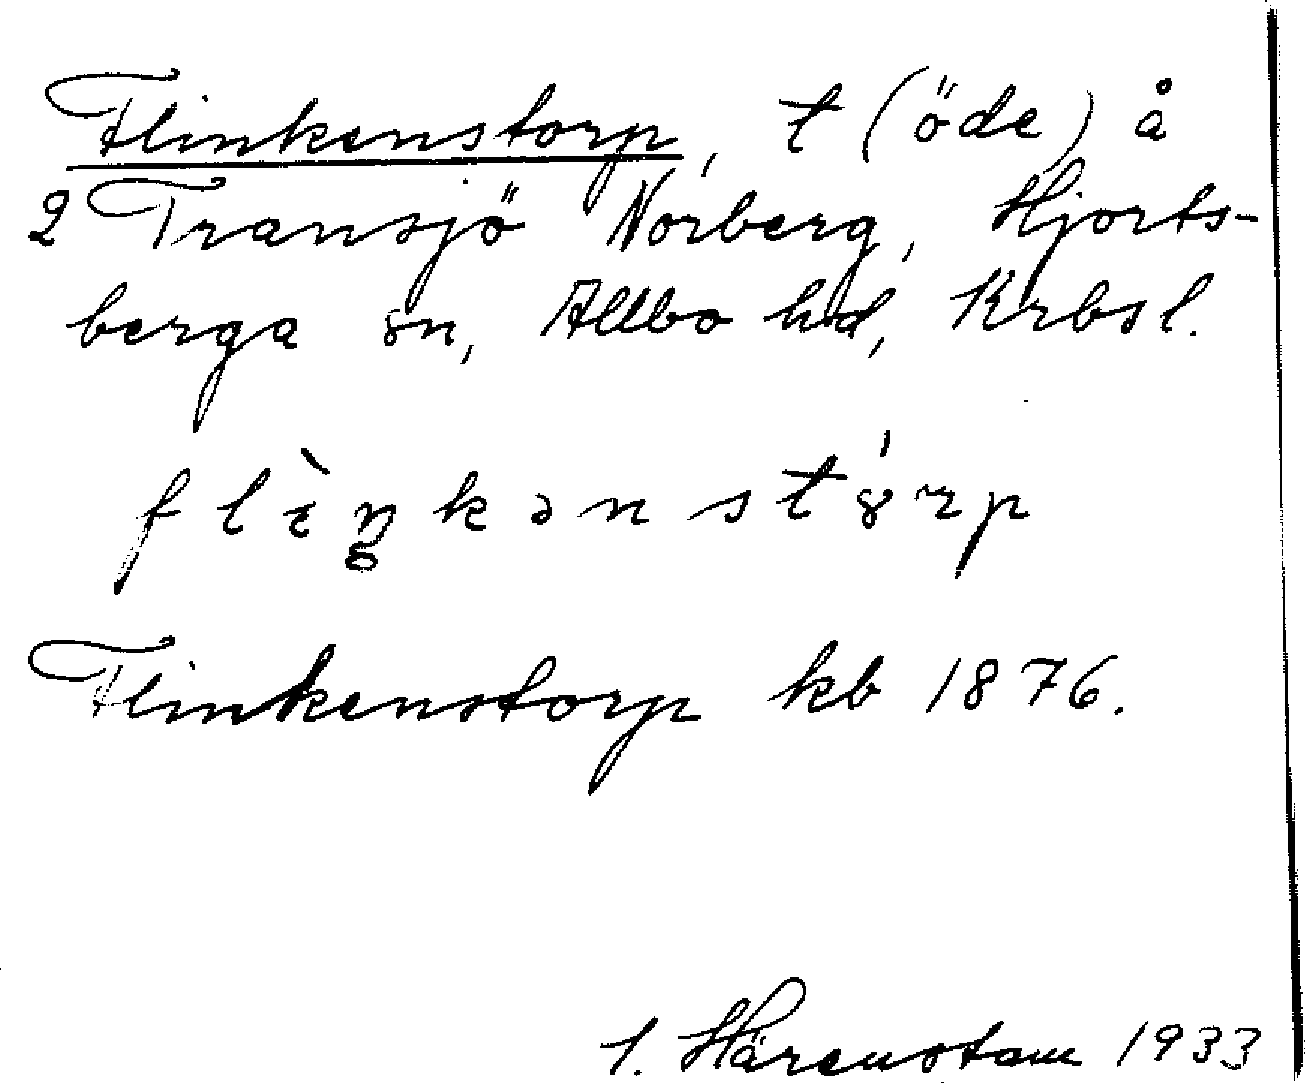 Flinkenstorp, t (öde) å
2 Transjö Norberg, Hjorts-
berga sn, Allbo hd, Krbsl.
flìŋkənstȣ́rp
Flinkenstorp kb 1876.
1. Härenstam 1933